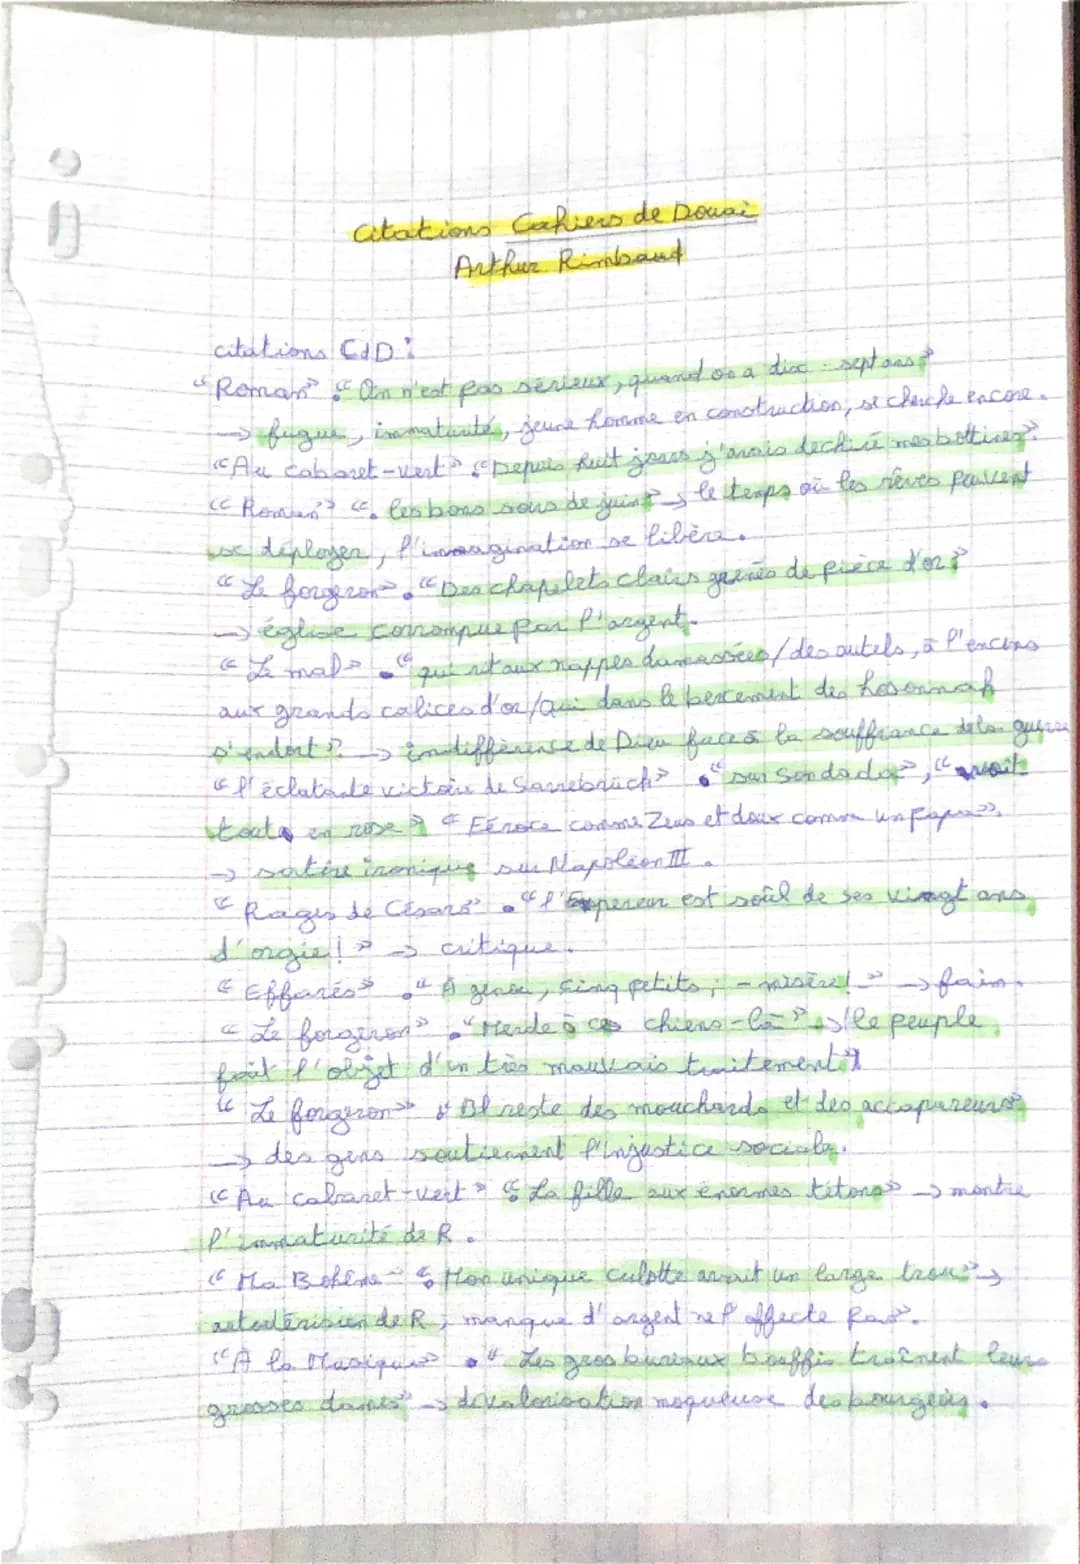 Citations Cahiers de Douai
Arthur Rimbaud
citations CdD :
"Roman" : "On n'est pas sérieux, quand on a dix-sept ans"
→ fugue, immaturité, jeune homme en construction, se cherche encore.
"Au cabaret-vert" : "Depuis huit jours j'avais dechiré mes bottines"
"Roman" : "les bons soirs de juin" → le temps où les rêves peuvent
se déployer, l'imagination se libère.
"Le forgeron" . "Des chapelets clairs grenés de pièce d'or"
→ église corrompue par l'argent.
"Le mal" . "qui rit aux nappes damassées / des autels, à l'encens
aux grands calices d'or / Qui dans le bercement des hosannah
s'endort" → indifférence de Dieu face à la souffrance de la guerre
"l'éclatante victoire de Sarrebrück" . "sur son dada", " voit
tout en rose" "Féroce comme Zeus et doux comme un Papa".
→ satire ironique sur Napoléon III.
"Rages de Césars" . "l'Empereur est soûl de ses vingt ans
d'orgie !" → critique.
"Effarés" . "À genou, cinq petits, - misère ! -" → faim.
"Le forgeron" . "Merde à ces chiens-là" → "le peuple
fait l'objet d'un très mauvais traitement"
"Le forgeron" : "Il reste des mouchards et des accapareurs"
→ des gens soutiennent l'injustice sociale.
"Au cabaret-vert" : "La fille aux énormes tétons" → montre
l'immaturité de R.
"Ma Bohême" : "Mon unique culotte avait un large trou" →
de R, manque d'argent ne l'affecte pas".
"À la Musique" . "Les gros bureaux bouffis traînent leurs
grosses dames" → dévalorisation moqueuse des bourgeois.